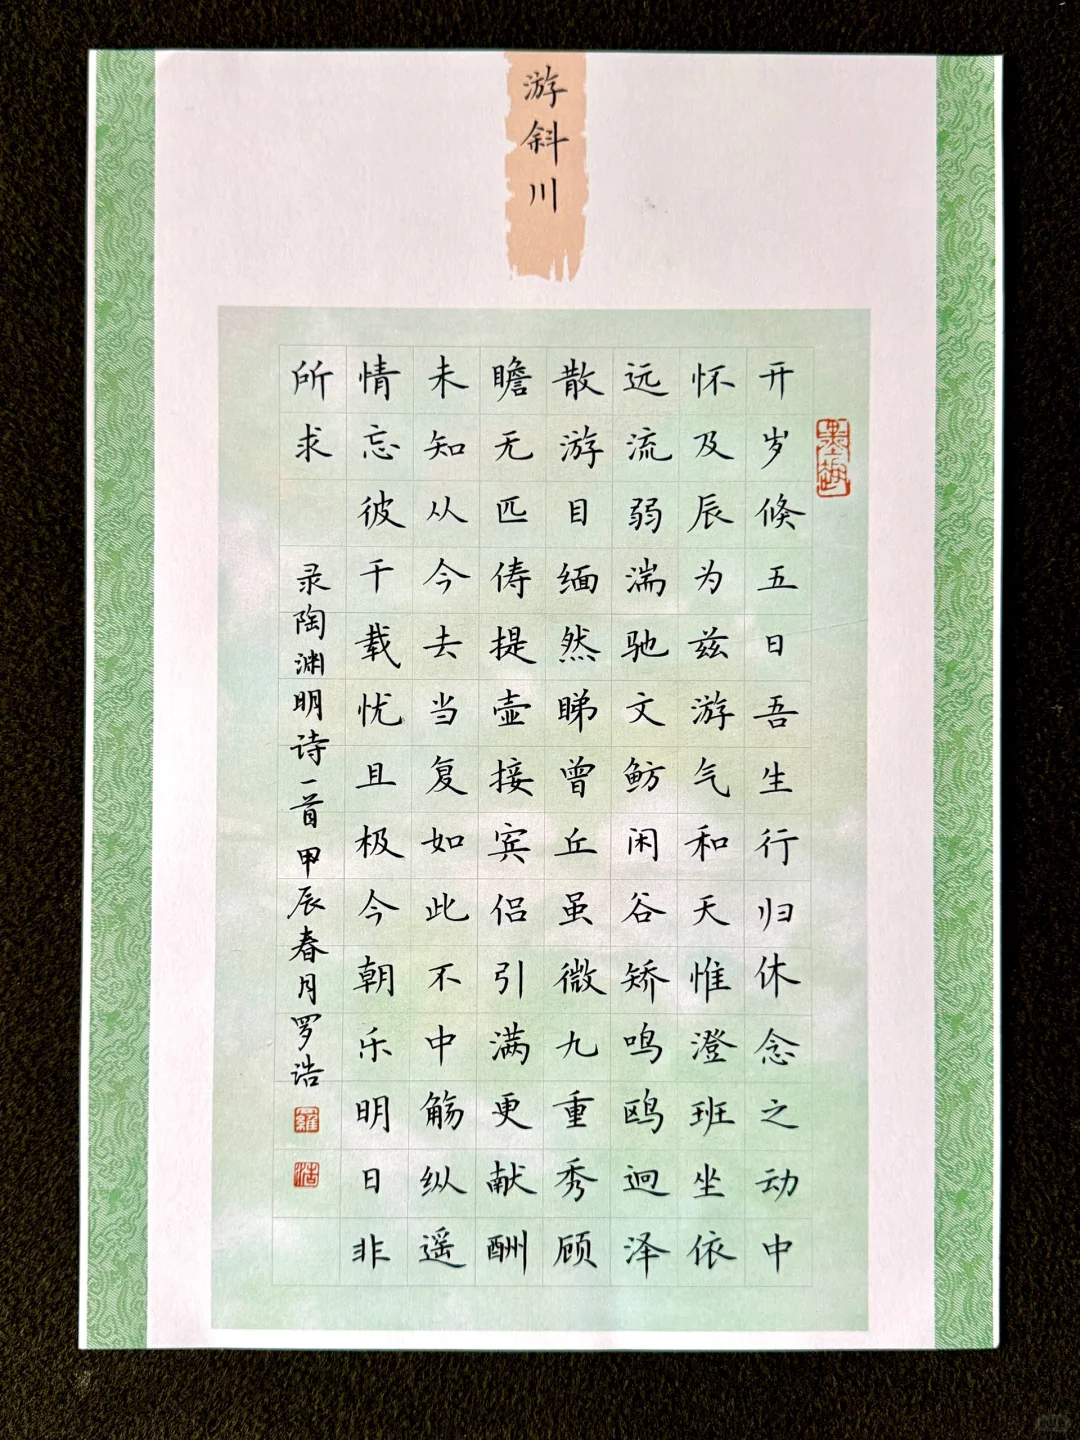 游斜川
开岁倏五日吾生行归休念之动中
怀及辰为兹游气和天惟澄班坐依
远流弱湍驰文鲂闲谷矫鸣鸥迥泽
散游目缅然睇曾丘虽微九重秀顾
瞻无匹俦提壶接宾侣引满更献酬
未知从今去当复如此不中觞纵遥
情忘彼千载忧且极今朝乐明日非
所求
录陶渊明诗一首甲辰春月罗浩